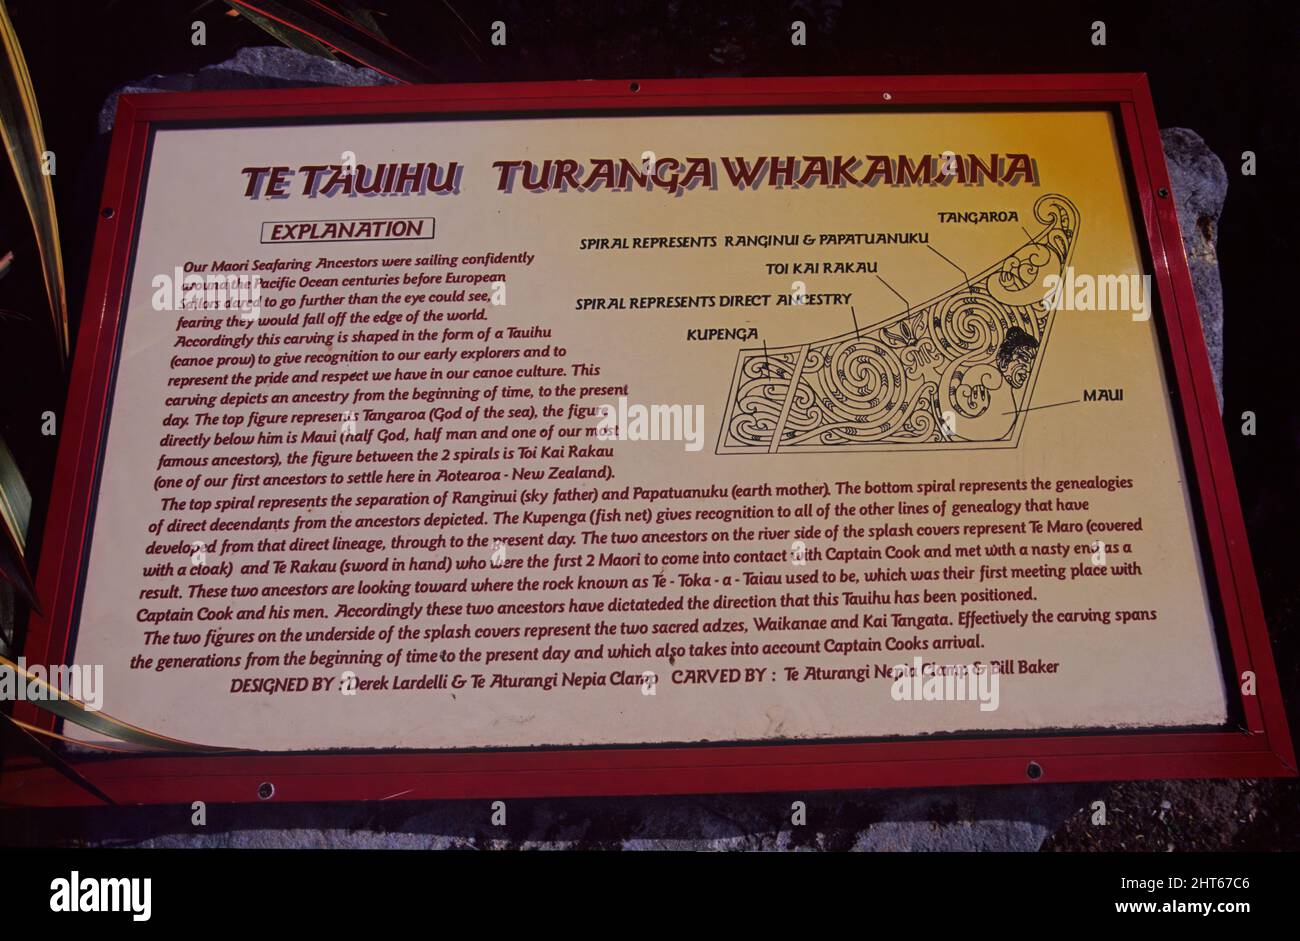 TE TAUIHU TURANGA WHAKAMANA
EXPLANATION
TANGAROA
SPIRAL REPRESENTS RANGINUI & PAPATUANUKU
TOI KAI RAKAU
SPIRAL REPRESENTS DIRECT ANCESTRY
KUPENGA
MAUI
Our Maori Seafaring Ancestors were sailing confidently
around the Pacific Ocean centuries before European
Sailors dared to go further than the eye could see,
fearing they would fall off the edge of the world.
Accordingly this carving is shaped in the form of a Tauihu
(canoe prow) to give recognition to our early explorers and to
represent the pride and respect we have in our canoe culture. This
carving depicts an ancestry from the beginning of time, to the present
day. The top figure represents Tangaroa (God of the sea), the figure
directly below him is Maui (half God, half man and one of our most
famous ancestors), the figure between the 2 spirals is Toi Kai Rakau
(one of our first ancestors to settle here in Aotearoa - New Zealand).
The top spiral represents the separation of Ranginui (sky father) and Papatuanuku (earth mother). The bottom spiral represents the genealogies
of direct decendants from the ancestors depicted. The Kupenga (fish net) gives recognition to all of the other lines of genealogy that have
developed from that direct lineage, through to the present day. The two ancestors on the river side of the splash covers represent Te Maro (covered
with a cloak) and Te Rakau (sword in hand) who were the first 2 Maori to come into contact with Captain Cook and met with a nasty end as a
result. These two ancestors are looking toward where the rock known as Te - Toka - a - Taiau used to be, which was their first meeting place with
Captain Cook and his men. Accordingly these two ancestors have dictateded the direction that this Tauihu has been positioned.
The two figures on the underside of the splash covers represent the two sacred adzes, Waikanae and Kai Tangata. Effectively the carving spans
the generations from the beginning of time to the present day and which also takes into account Captain Cooks arrival.
DESIGNED BY : Derek Lardelli & Te Aturangi Nepia Clamp CARVED BY : Te Aturangi Nepia Clamp & Bill Baker
alamy
Image ID: 2HT67C6
www.alamy.com